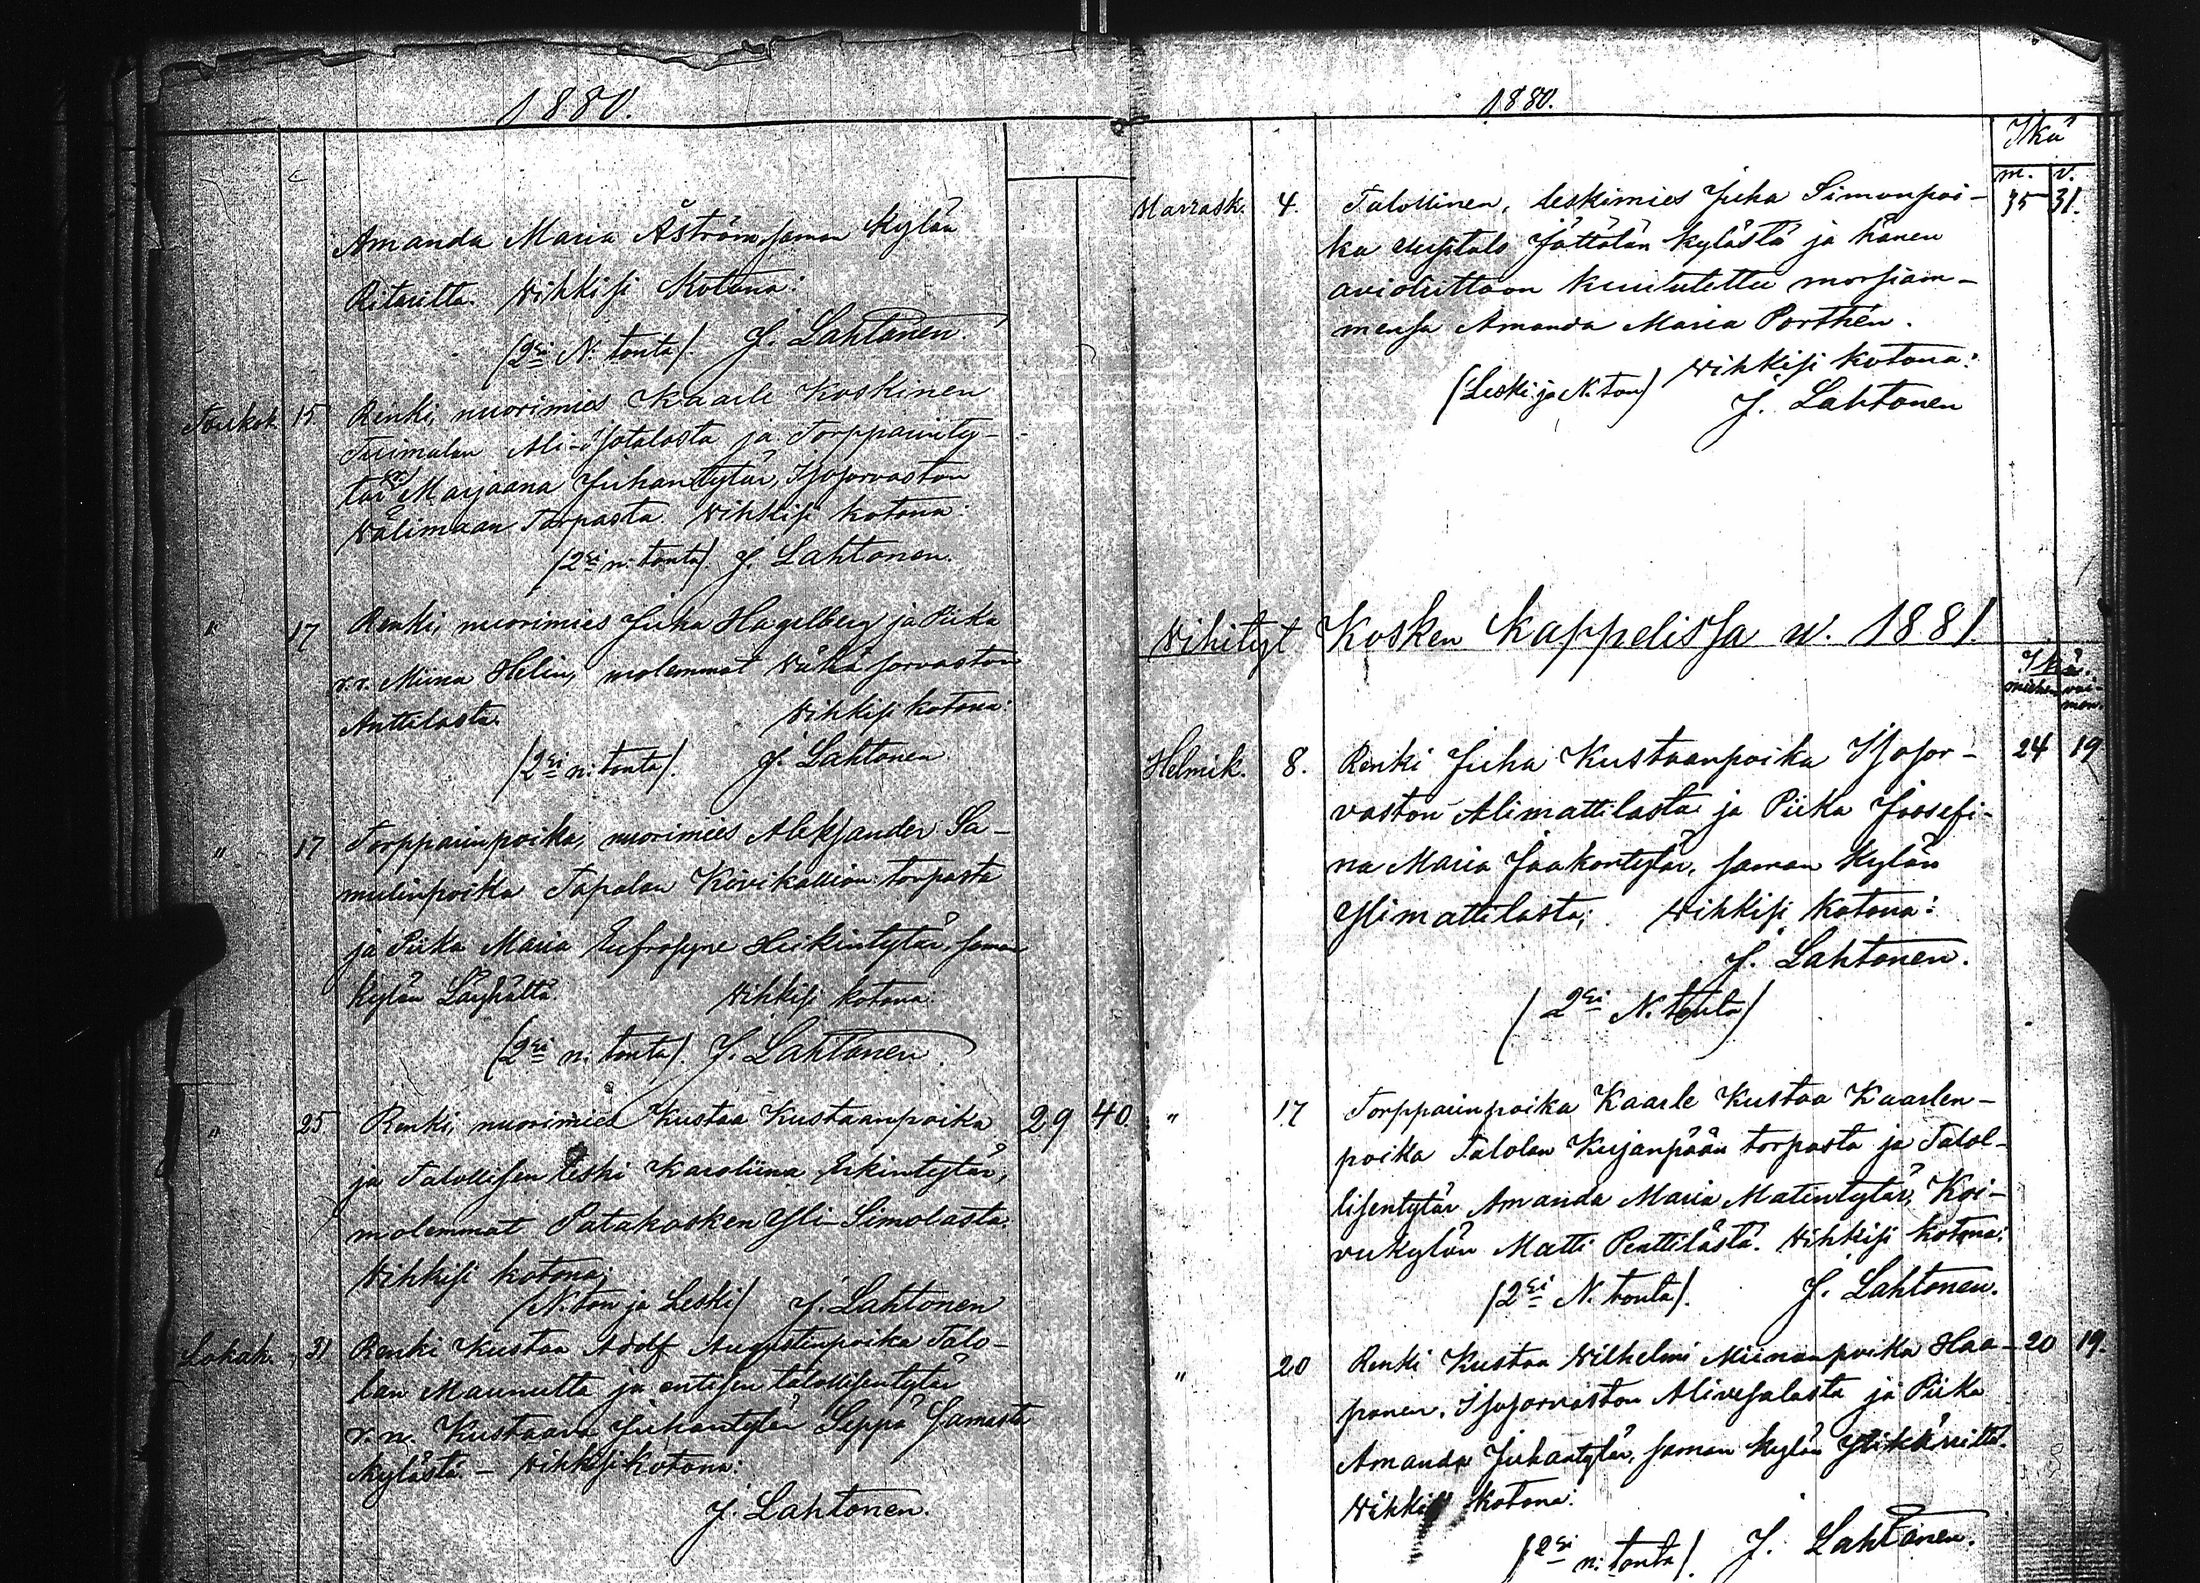 1880.
Amanda Maria Åström saman kylän
Ritarilta. Wihkisi Kotona:
(2si N: tonta). J. Lahtonen.
Toukok. 15. Renki, nuorimies Kaarle Koskinen
Tuimalan Ali-Isotalosta ja Torpparinty-
tär Marjaana Juhantytär, Isosorvaston
Välimaan Torpasta. Wihkisi kotona:
(2si n: tonta). J. Lahtonen.
" 17 Renki, nuorimies Juha Hagelberg ja Piika
Miina Helin, molemmat Wähä sorvaston
Anttilasta. Wihkisi kotona:
(2si n: tonta). J. Lahtonen.
" 17 Torpparinpoika, nuorimies Aleksander Sa-
mulinpoika Tapalan Kivikallion torpasta
ja Piika Maria Eufrosyne Heikintytär, saman
kylän Wihkisi kotona:
(2si n. tonta). J. Lahtonen.
" 25 Renki, nuorimies Kustaa Kustaanpoika 29 40.
ja Talollisen leski Karoliina Erkintytär,
molemmat Patakosken Yli-Simolasta.
Wihkisi kotona;
(N: ton ja Leski) J. Lahtonen
Lokak. 31 Renki Kustaa Adolf Augustinpoika Talo-
lan Maunulta ja entisen talollisentytär
v. n. Kustaava Juhantytär Seppä Samasta
kylästä. – Wihkisi kotona:
J. Lahtonen.
1880.
Ikä
m. v.
Marrask. 4. Talollinen, leskimies Juha Simonpoi- 35 31.
ka Uusitalo Jättälän kylästä ja hänen
avioliittoon kuulutettu morsiam-
mensa Amanda Maria Porthén.
Wihkisi kotona:
(Leski ja N. ton) J. Lahtonen
Wihityt Kosken Kappelissa w. 1881.
Ikä.
miehen vai-
mon.
Helmik. 8. Renki Juha Kustaanpoika Isosor- 24 19
vaston Alimattilasta ja Piika Joosefi-
na Maria Jaakontytär, saman kylän
Ylimattilasta; Wihkisi kotona:
J. Lahtonen.
(2si N. tonta)
" 17 Torpparinpoika Kaarle Kustaa Kaarlen-
poika Talolan Kujanpään torpasta ja Talol-
lisentytär Amanda Maria Matintytär, Koi-
vukylän Matti Penttilästä. Wihkisi kotona:
(2si N. tonta). J. Lahtonen.
" 20 Renki Kustaa Wilhelmi Miinanpoika Haa- 20 19.
panen, Isosorvaston Alivesalasta ja Piika
Amanda Juhantytär, saman kylän
Wihkisi kotona:
(2si n: tonta). J. Lahtonen.